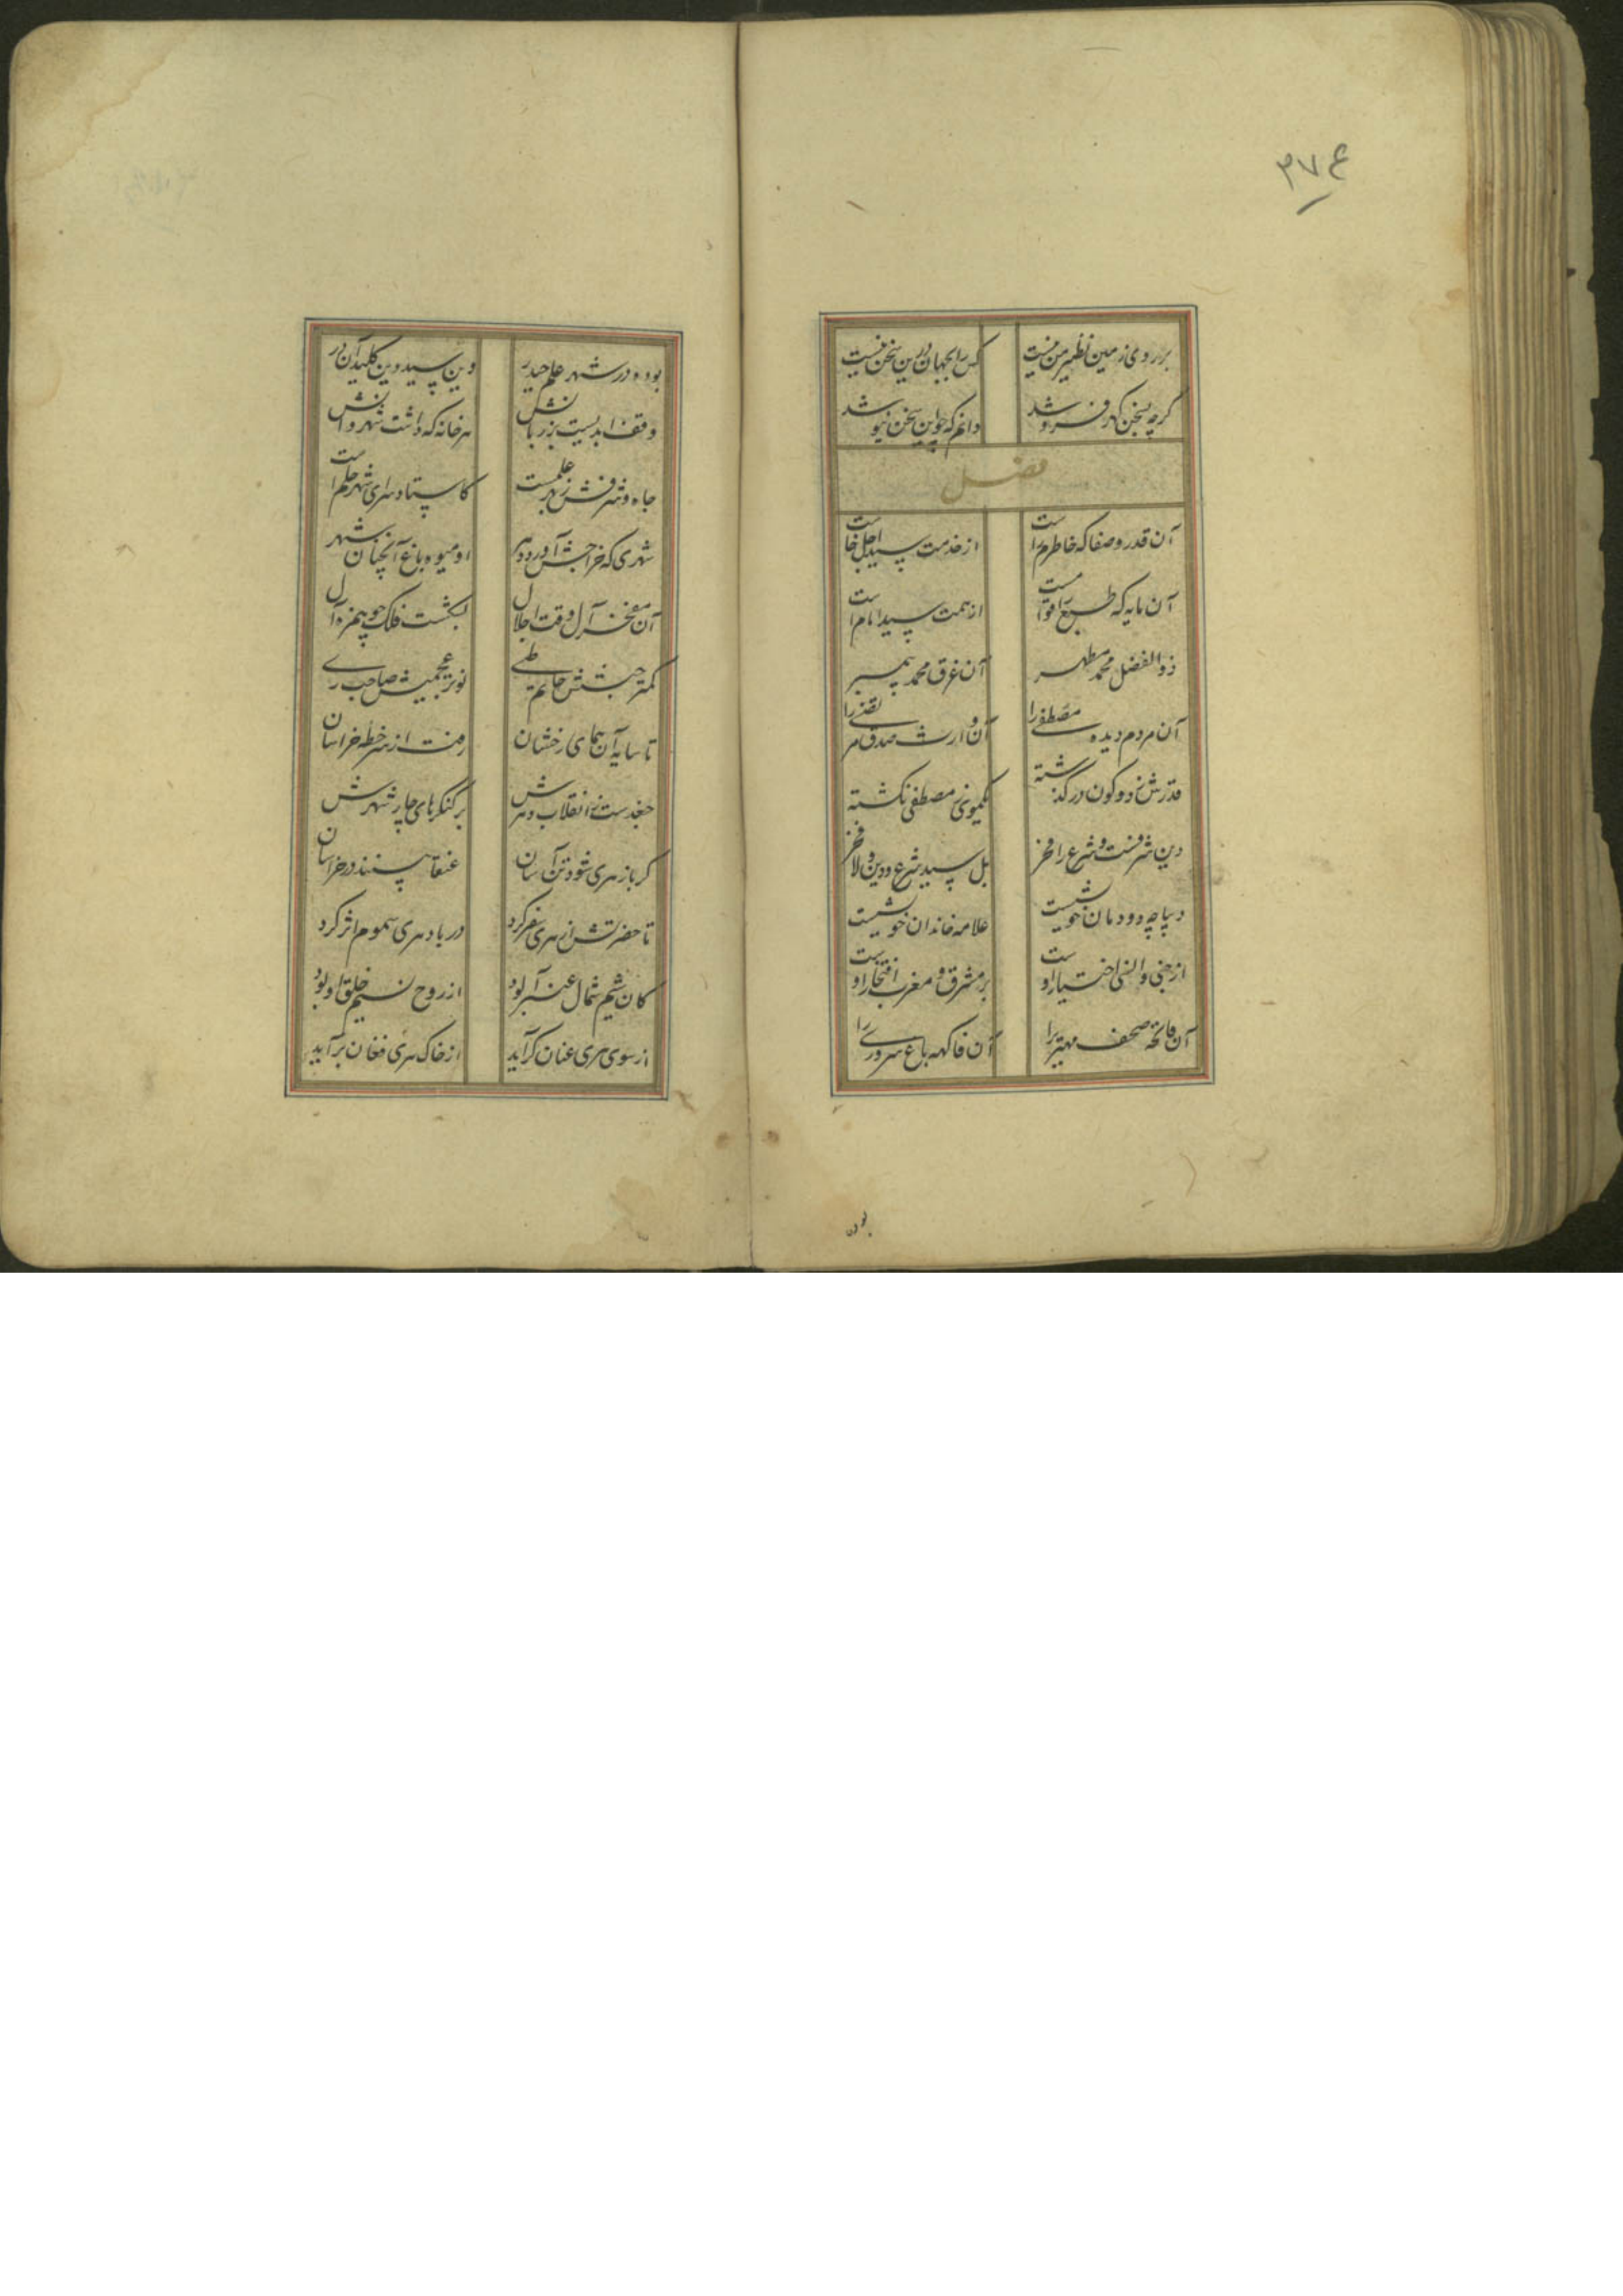 ۳۷۴
بر روی زمین نظیر من نیست کس را بجهان درین سخن نیست
گرچه بسخن گهر فروشد دانم که جو این سخن نیوشد
فصل
آن قدر و صفا که خاطرم راست از خدمت سید اجل خاست
آن مایه که طبع را قوامست از همت سید امام است
ذوالفضل محمد مطهر آن عرق محمد پیمبر
آن مردم دیده مصطفی را آن وارث صدق مرتضی را
قدرش ز دو کون در گذشته یکموی ز مصطفی نگشته
دین شرفست و شرع را فخر بل سید شرع و دین و لا فخر
دیباچه دودمان خویشست علامه خاندان خویشست
از جنی و انسی اختیار اوست بر مشرق و مغرب افتخار اوست
آن فاتحه صحف مهتری را آن فاکهه باغ سروری را
بوده
بوده در شهر علم حیدر وین سید دین کلید آن در
وقف ابدیست بر زبانش هر خانه که داشت شهر دانش
جاه و شرفش ز بهر علمست کاستاد سرای شهر حلم است
شهری که خراجش آورد دهر او میوه باغ آنچنان شهر
آن مفخر آل وقت اجلال بگذشت فلک چو همزه آل
کمتر حبشیش حاتم طی نوبر عجمیش صاحب ری
تا سایه آن همای رخشان رفت از سر خطه خراسان
جغدست ز انقلاب دهرش بر کنگرهای چار شهرش
گر باز هری شود تن آسان عنقا بینند در خراسان
تا حضرتش از هری سفر کرد در باد هری سموم اثر کرد
کان شم شمال عنبر آلود از روح نسیم خلق او بود
از سوی هری عنان گر آید از خاک هری فغان بر آید